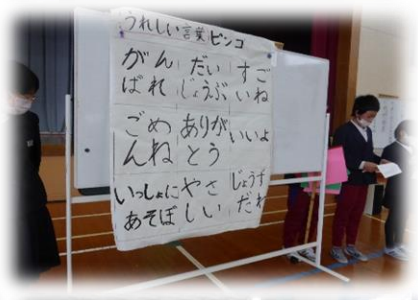 うれしい言葉ビンゴ
がんばれ
だいじょうぶ
すごいね
ごめんね
ありがとう
いいよ
いっしょにあそぼ
やさしい
じょうずだね